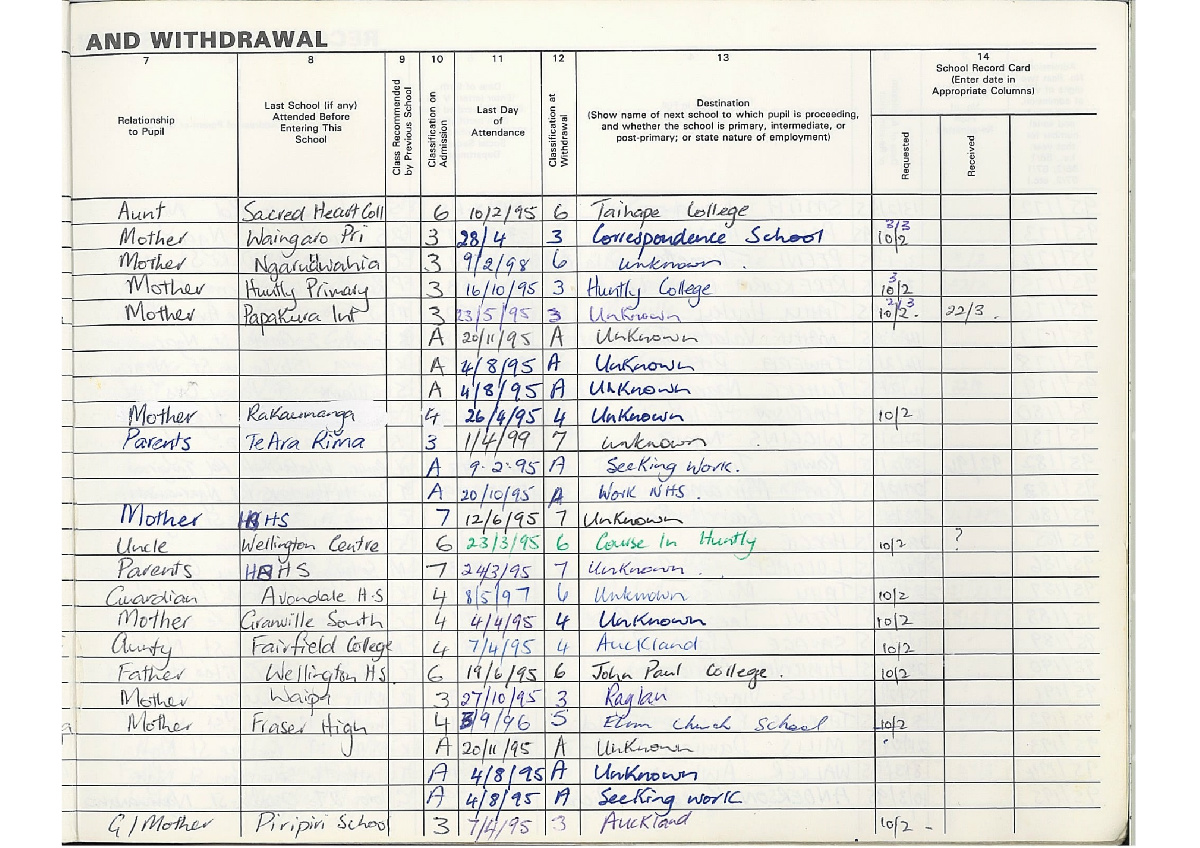 AND WITHDRAWAL
7 8 9 10 11 12 13 14
Relationship to Pupil
Last School (if any) Attended Before Entering This School
Class Recommended by Previous School
Classification on Admission
Last Day of Attendance
Classification at Withdrawal
Destination (Show name of next school to which pupil is proceeding, and whether the school is primary, intermediate, or post-primary; or state nature of employment)
School Record Card (Enter date in Appropriate Columns)
Requested
Received
Aunt Sacred Heart Coll 6 10/2/95 6 Taihape College
Mother Waingaro Pri 3 28/4 3 Correspondence School 3/3 10/2
Mother Ngaruawahia 3 9/2/98 6 unknown .
Mother Huntly Primary 3 16/10/95 3 Huntly College 3 10/2
Mother Papakura Int 3 23/5/95 3 Unknown 2/3 10/2. 22/3 .
A 20/11/95 A Unknown
A 4/8/95 A Unknown
A 4/8/95 A Unknown
Mother Rakaumanga 4 26/4/95 4 Unknown 10/2
Parents Te Ara Rima 3 1/4/99 7 unknown
A 9.2.95 A Seeking work.
A 20/10/95 A Work NHS .
Mother HS 7 12/6/95 7 Unknown
Uncle Wellington Centre 6 23/3/95 6 Course In Huntly 10/2 ?
Parents HS 7 24/3/95 7 Unknown .
Guardian Avondale H.S 4 8/5/97 6 Unknown 10/2
Mother Granville South 4 4/4/95 4 Unknown 10/2
Aunty Fairfield College 4 7/4/95 4 Auckland 10/2
Father Wellington HS. 6 19/6/95 6 John Paul College . 10/2
Mother Waipa 3 27/10/95 3 Raglan
Mother Fraser High 4 3/9/96 5 Elim Church School 10/2
A 20/11/95 A Unknown
A 4/8/95 A Unknown
A 4/8/95 A Seeking work
G/Mother Piripiri School 3 7/4/95 3 Auckland 10/2 -